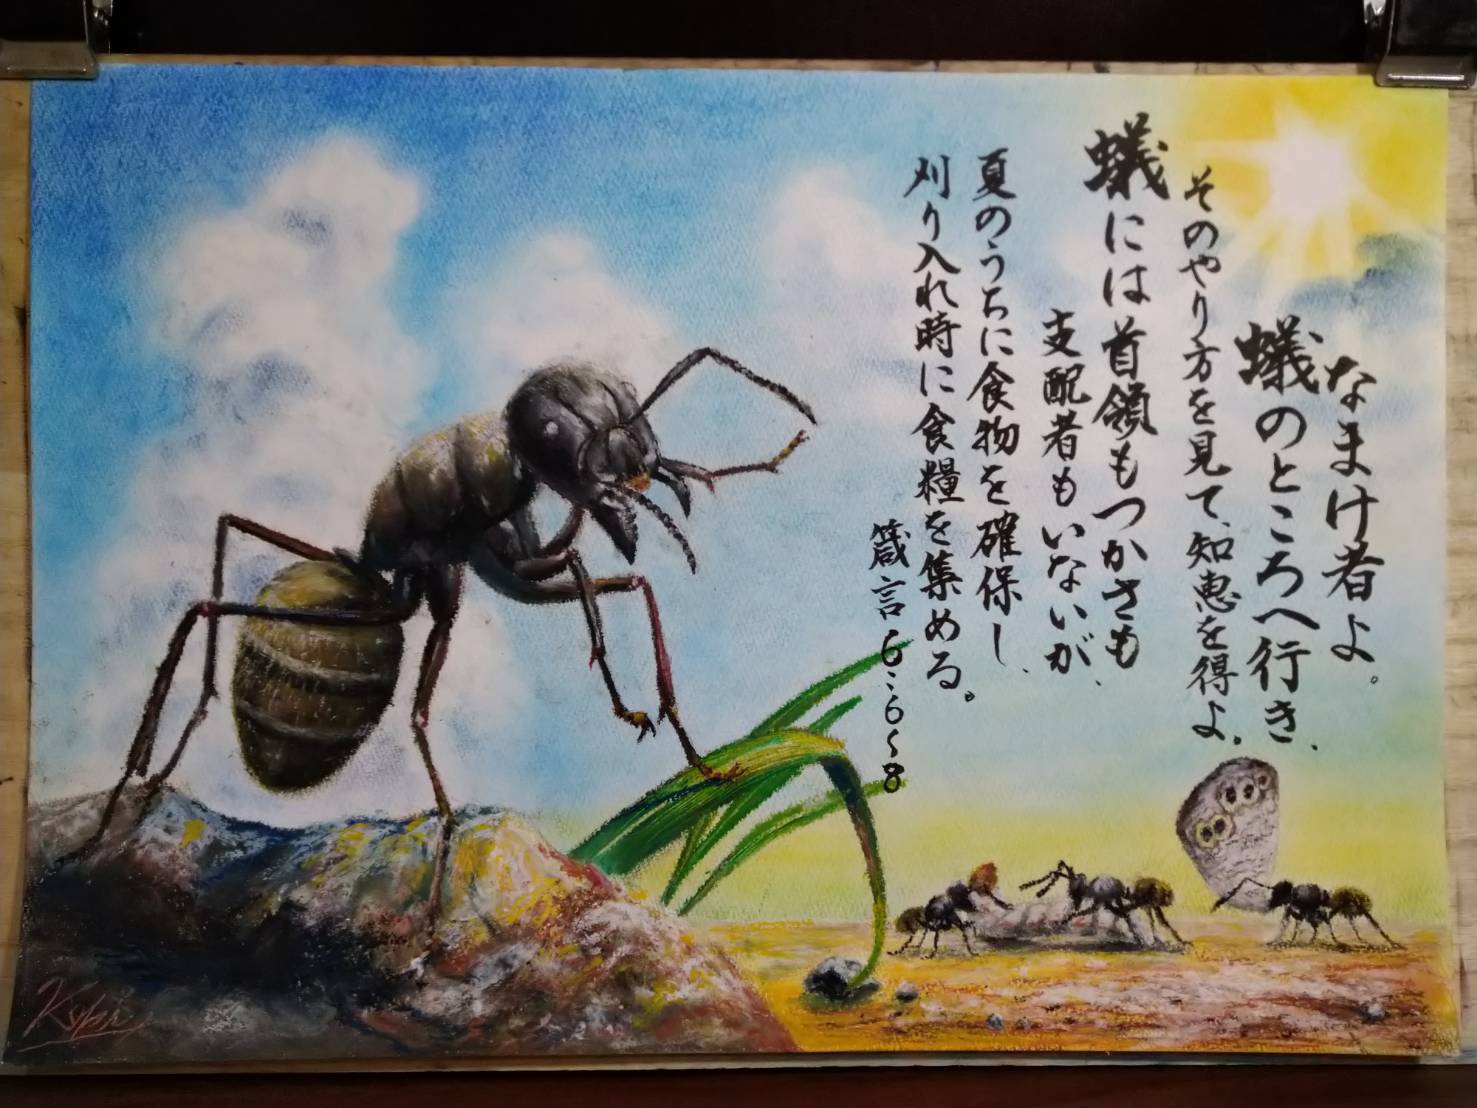 なまけ者よ。
蟻のところへ行き、
そのやり方を見て、知恵を得よ。
蟻には首領もつかさも
支配者もいないが、
夏のうちに食物を確保し、
刈り入れ時に食糧を集める。
箴言6:6~8